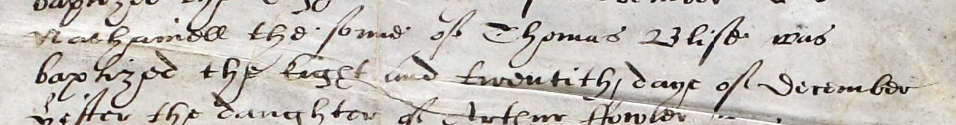 baptized the
Nathaniell the sonne of Thomas Blisse was
baptized the Eight and twentith daye of December
Hester the daughter of Arthur Fowler